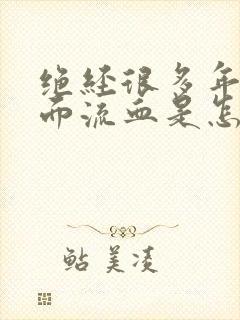 绝经很多年
而流血是怎
鲇美凌